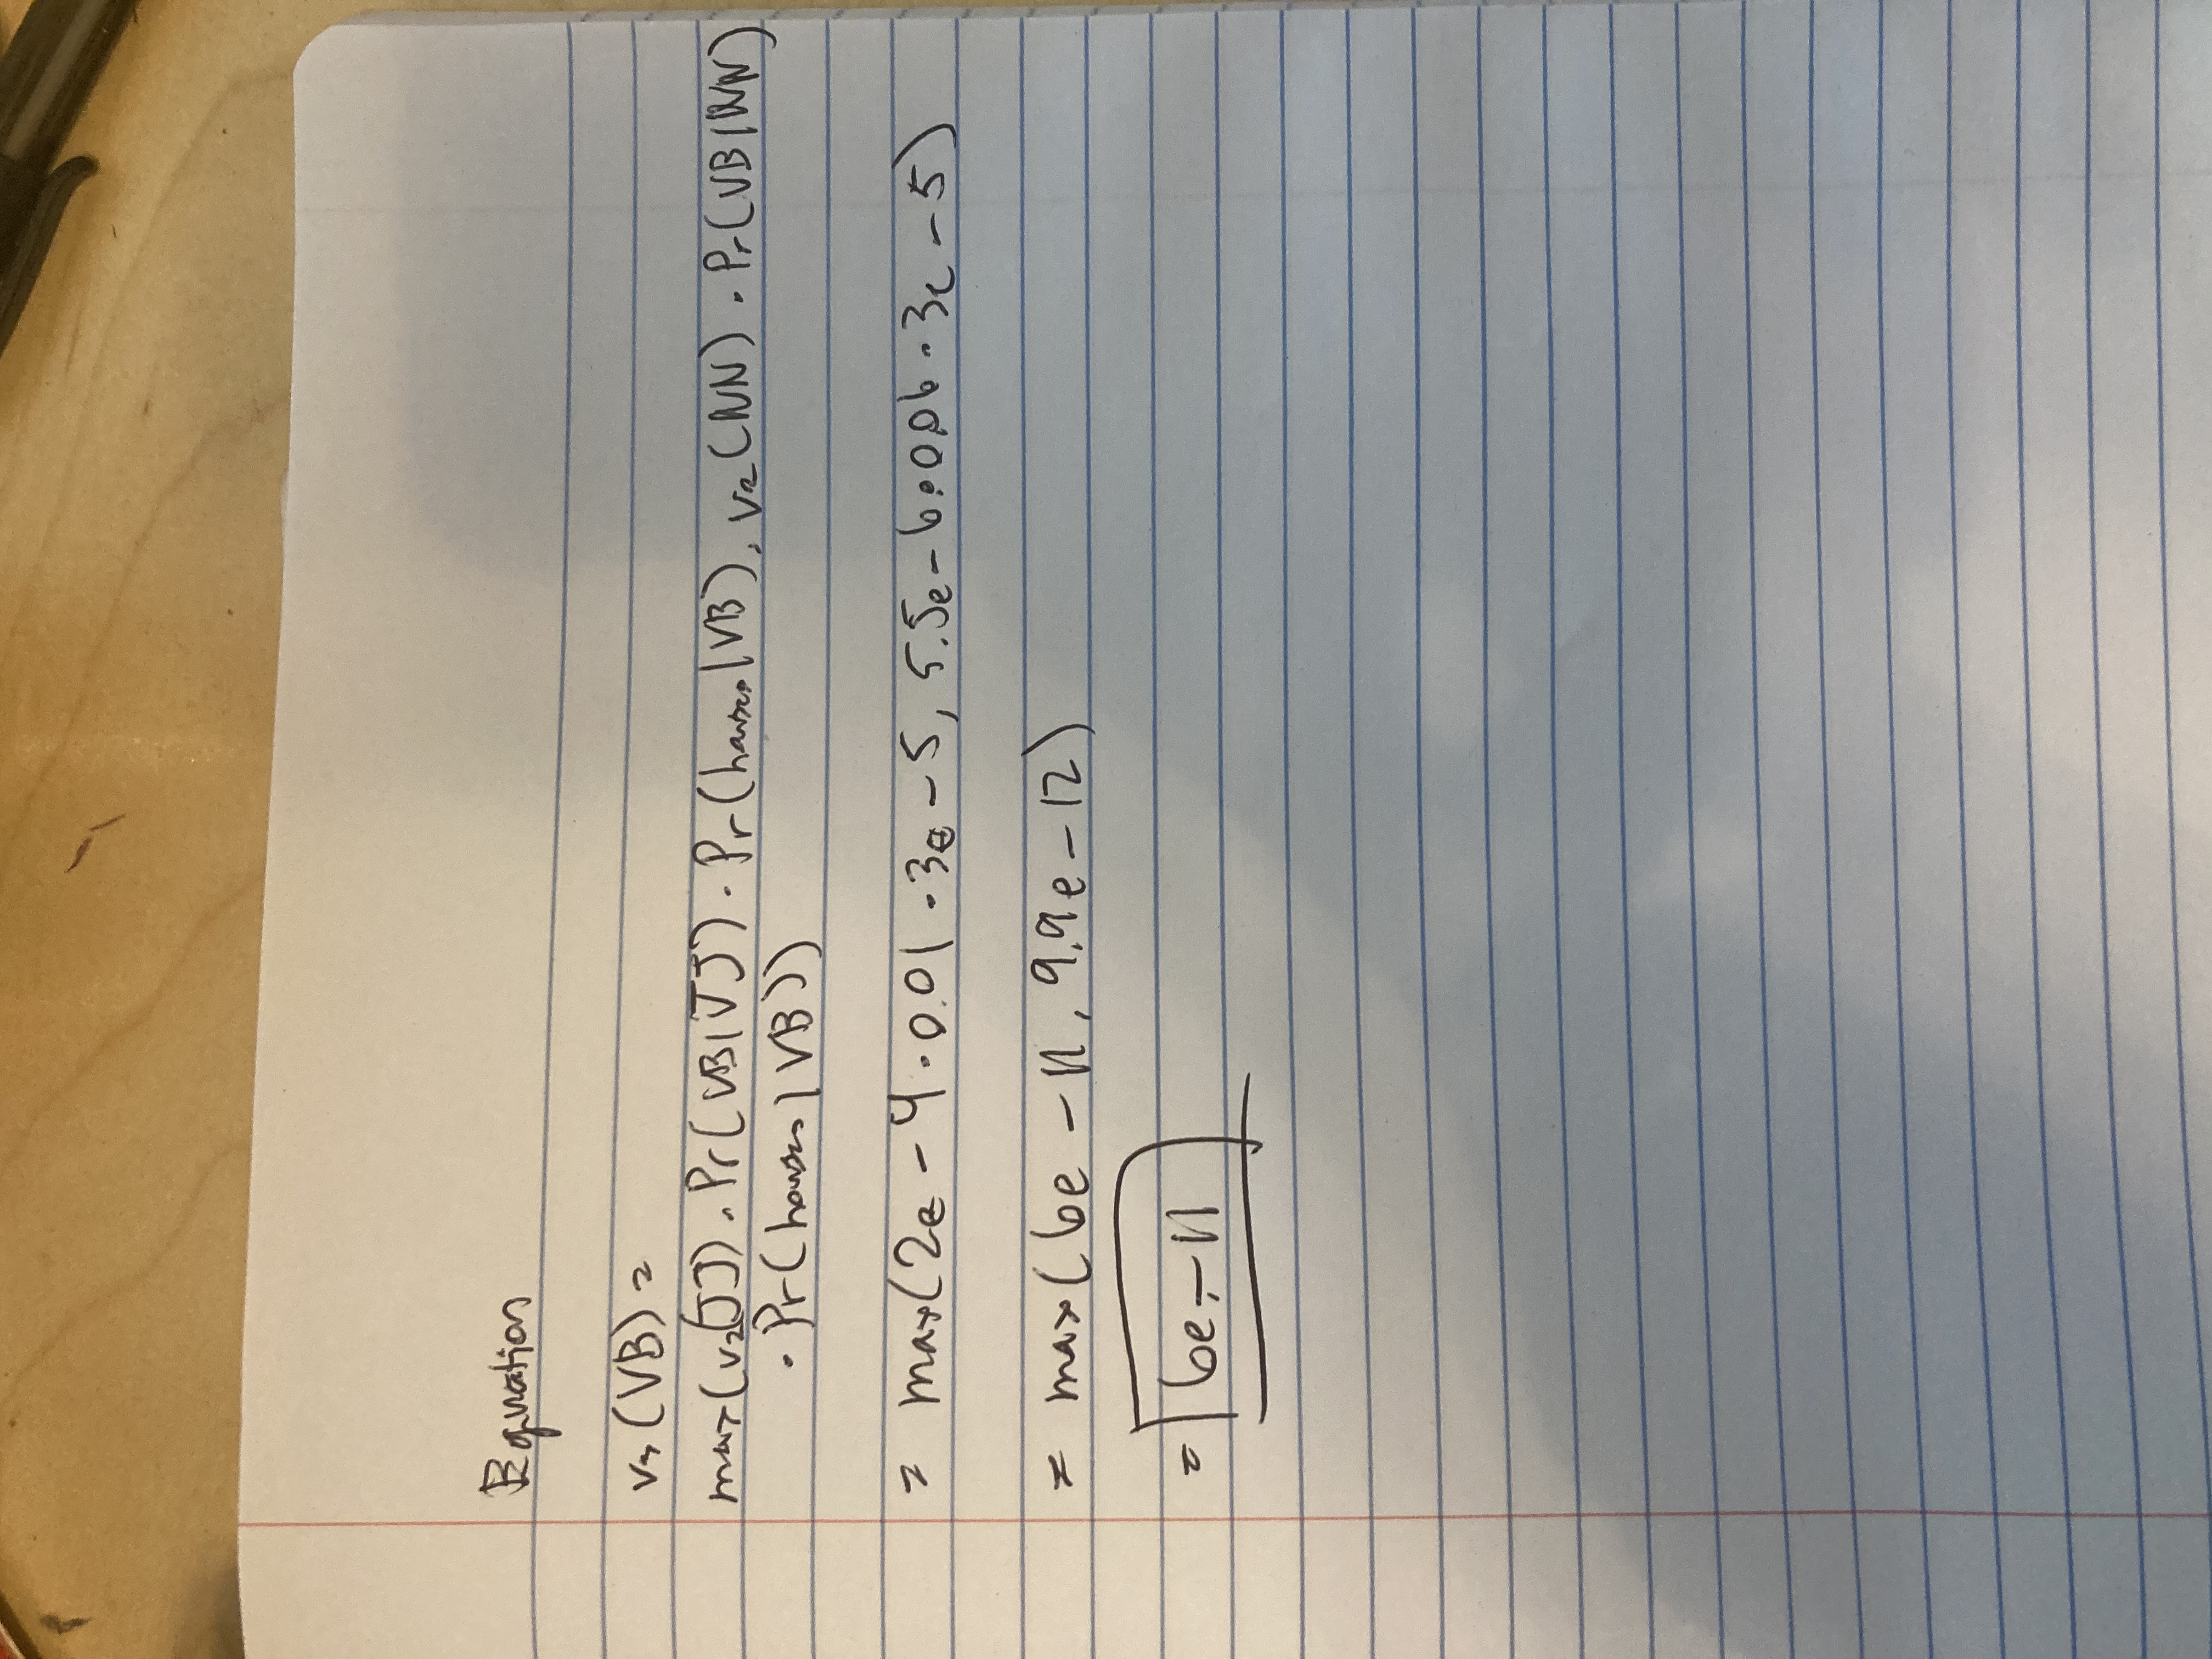 Equation
v₃(VB) =
max(v₂(JJ) · Pr(VB|JJ) · Pr(houses|VB), v₂(NN) · Pr(VB|NN)
· Pr(houses|VB))
= max(2e-4 · 0.01 · 3e-5, 5.5e-6 · 0.06 · 3e-5)
= max(6e-11, 9.9e-12)
= 6e-11